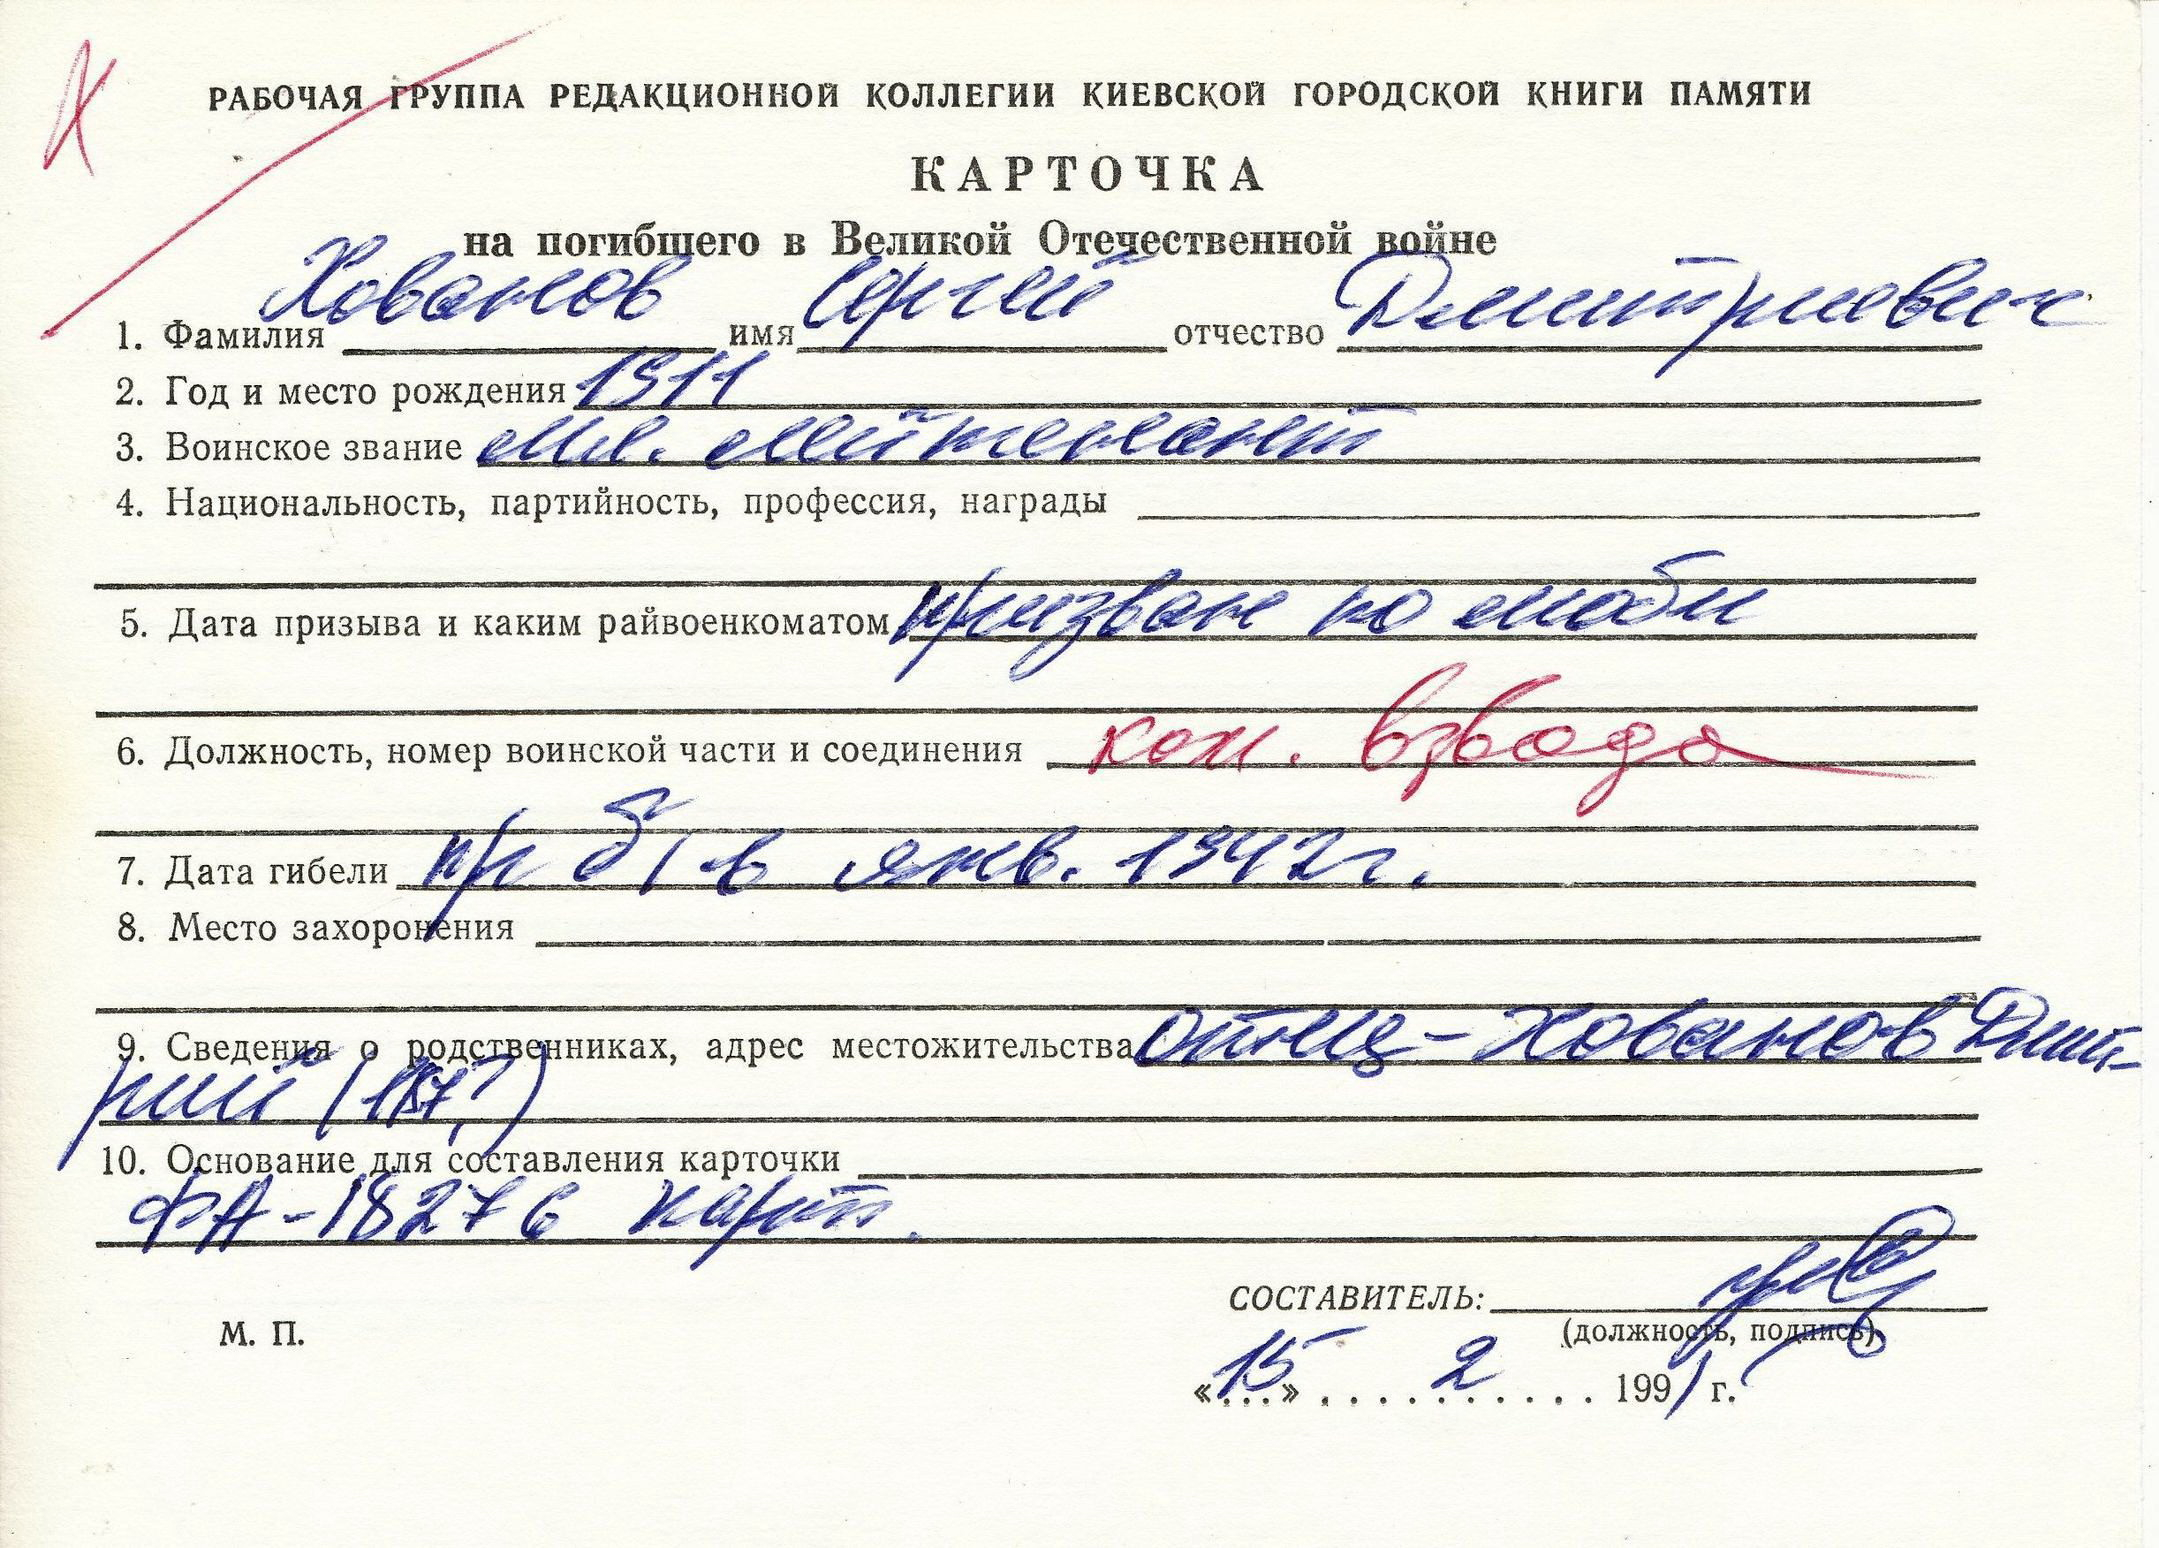 Х
РАБОЧАЯ ГРУППА РЕДАКЦИОННОЙ КОЛЛЕГИИ КИЕВСКОЙ ГОРОДСКОЙ КНИГИ ПАМЯТИ
КАРТОЧКА
на погибшего в Великой Отечественной войне
1. Фамилия Хованов имя Сергей отчество Дмитриевич
2. Год и место рождения 1911
3. Воинское звание мл. лейтенант
4. Национальность, партийность, профессия, награды
5. Дата призыва и каким райвоенкоматом призван по моби
6. Должность, номер воинской части и соединения ком. взвода
7. Дата гибели пр б/ в янв. 1942 г.
8. Место захоронения
9. Сведения о родственниках, адрес местожительства отец - Хованов Дмит-
рий
10. Основание для составления карточки
ФА-18276 карт.
СОСТАВИТЕЛЬ:
М. П.
(должность, подпись)
«15» 2 1991 г.